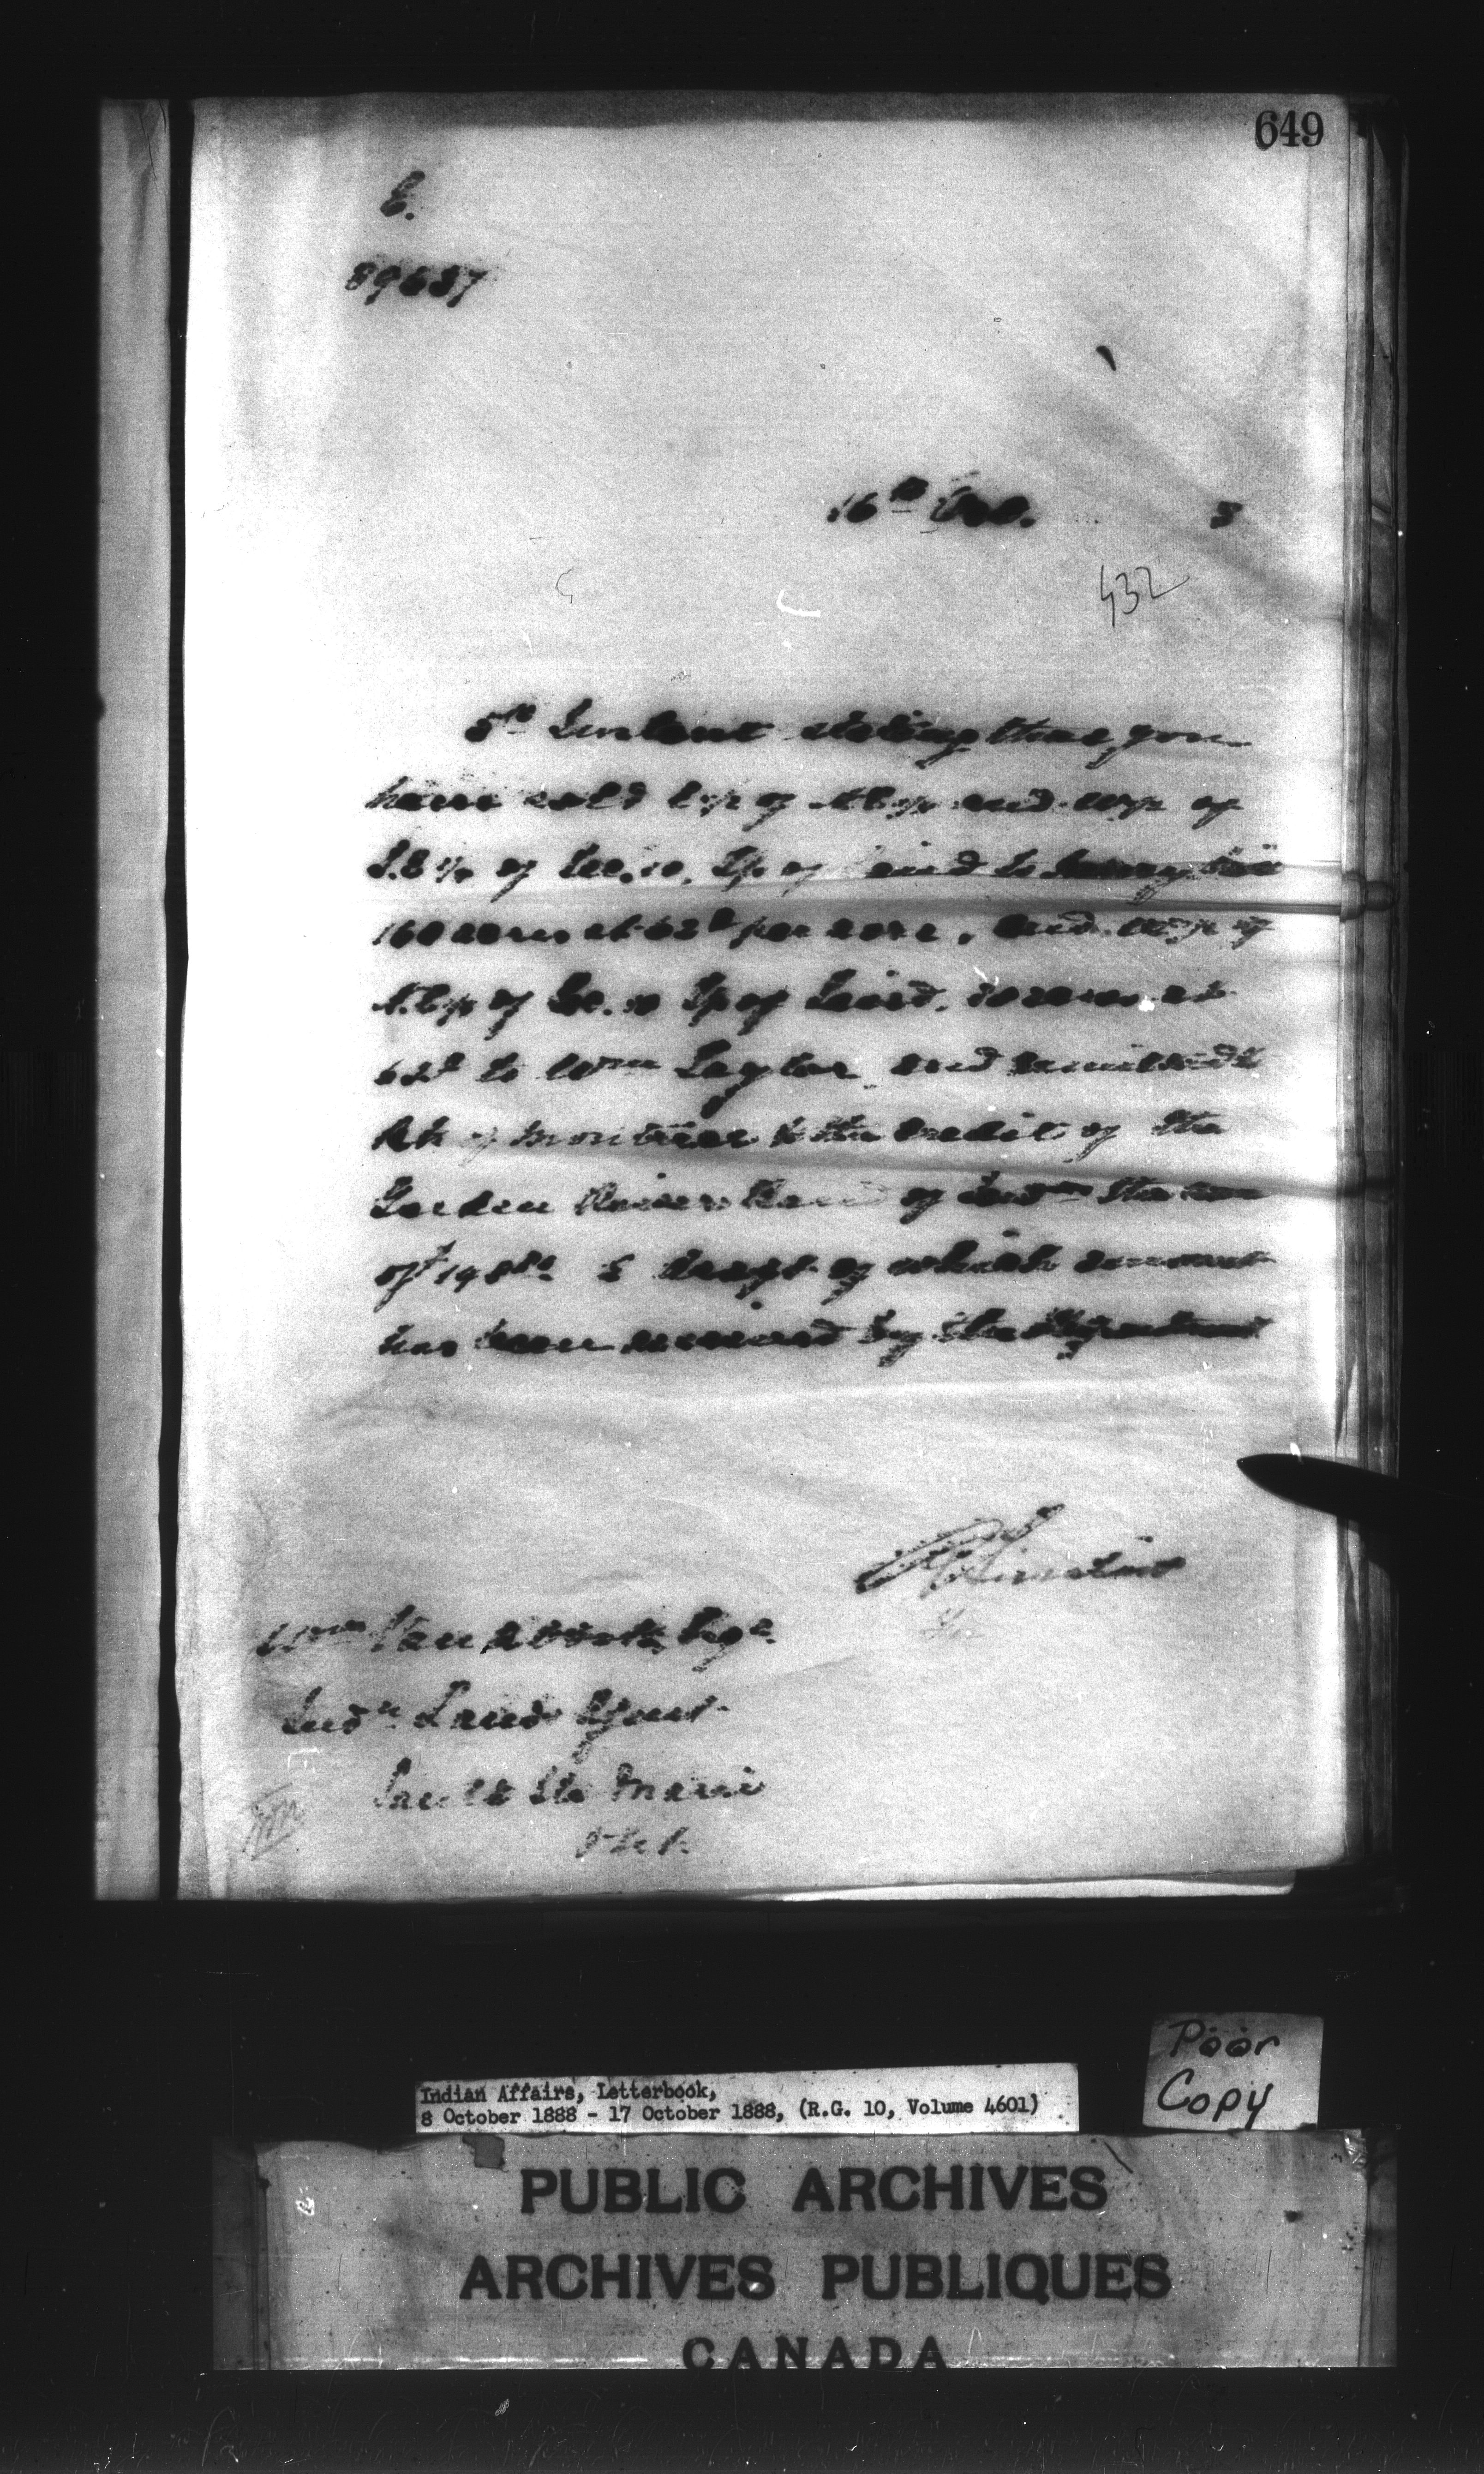 649
89687
16th Oct. 8
432
5th Instant stating that you
have sold E½ of N.E.¼ and W½ of
S.E.¼ of Sec. 10, Tp. of Laird to
160 acres at 62c per acre, and of
N.E.¼ of Sec. 10 Tp of Laird, acres at
62c to Wm Taylor and
Bk of Montreal to the credit of the
Garden River Band of Indns the
of draft of which amount
has been received by the Department
Wm Van Abbott Esqre.
Indn Land Agent
Sault Ste Marie
Ont.
Poor
Copy
Indian Affairs, Letterbook,
8 October 1888 - 17 October 1888, (R.G. 10, Volume 4601)
PUBLIC ARCHIVES
ARCHIVES PUBLIQUES
CANADA